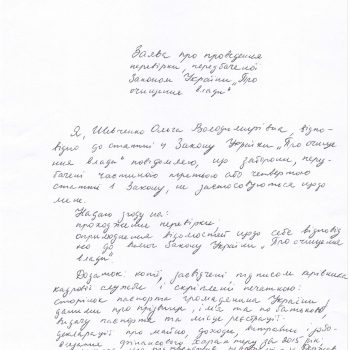 Заява про проведення
перевірки, передбаченої
Законом України „Про
очищення влади"
Я, Шевченко Ольга Володимирівна, відпо-
відно до статті 4 Закону України „Про очище
ння влади" повідомляю, що заборони, перед-
бачені частиною третьою або четвертою
статті 1 Закону, не застосовуються щодо
мене.
Надаю згоду на:
проходження перевірки;
оприлюднення відомостей щодо себе відповід
но до вимог Закону України „Про очищення
влади".
Додаток: копії, засвідчені підписом керівника
кадрової служби і скріплені печаткою:
сторінок паспорта громадянина України
даними про прізвище, ім'я та по батькові,
видачу паспорта та місце реєстрації;
декларації про майно, доходи, витрати і зобо-
в'язання фінансового характеру за 2015 рік;